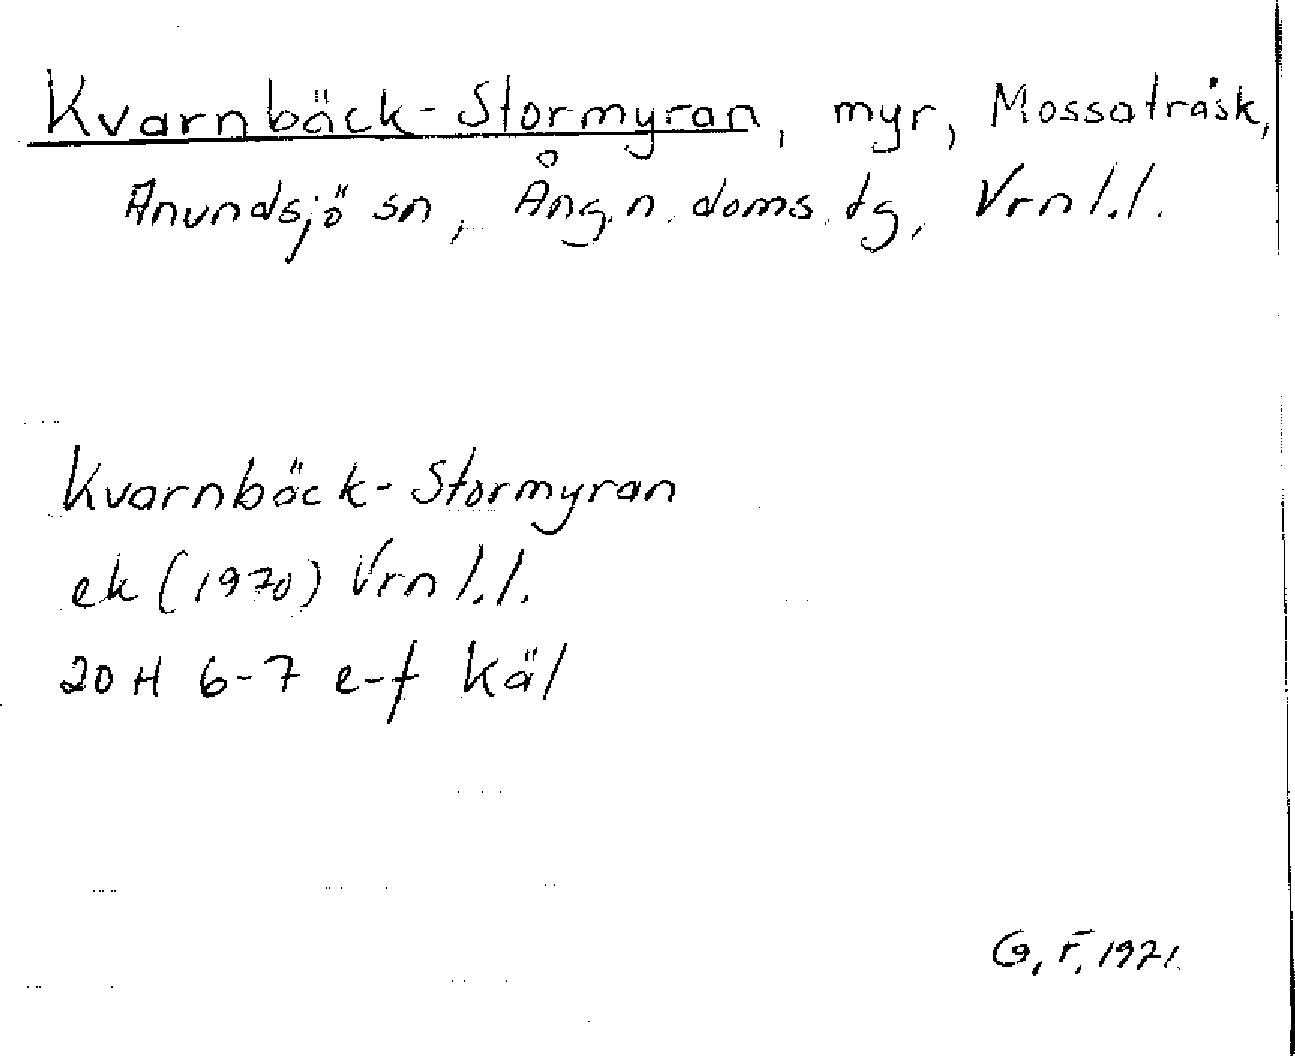 Kvarnbäck-Stormyran, myr, Mossaträsk,
Anundsjö sn, Ång.n. doms.tg, Vrnl.l.
Kvarnbäck-Stormyran
ek (1970) Vrn l.l.
20 H 6-7 e-f Käl
G.F. 1971.